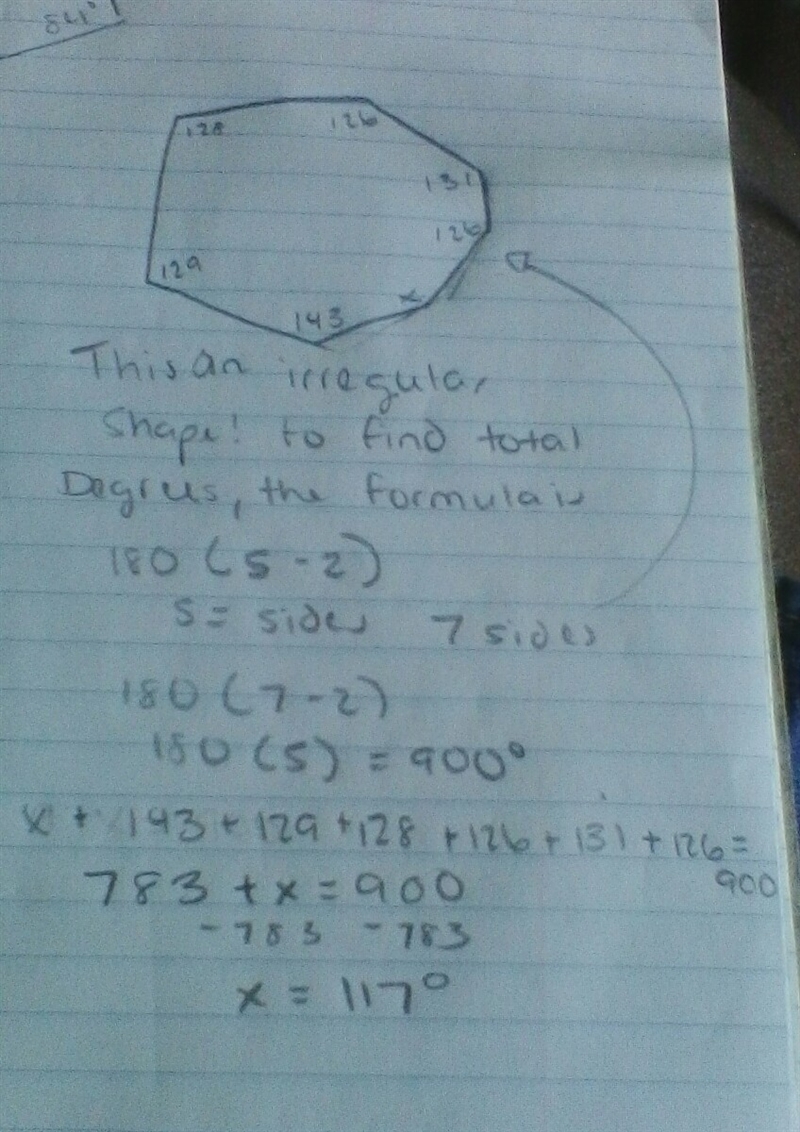 84°
128 126
131
126
129
x
143
This an irregular
Shape! to find total
Degrees, the formula is
180 (s - 2)
s = sides 7 sides
180 (7 - 2)
180 (5) = 900°
x + 143 + 129 + 128 + 126 + 131 + 126 =
900
783 + x = 900
- 783 - 783
x = 117°